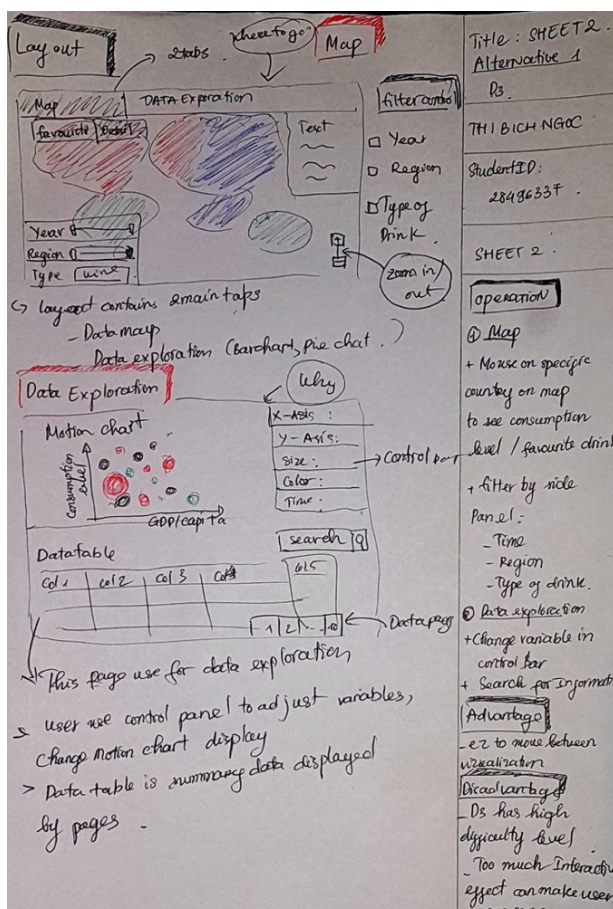 Layout
2tabs
where to go
Map
Map
DATA Exporation
favourite
Text
Year
Region
Type wine
filter control
Year
Region
Type of
Drink
zoom in/
out
layout contains 2 main taps
- Data map
Data exploration (Barchart, pie chat . )
Data Exploration
Why
Motion chart
Consumption
level
GDP/capita
X-Axis :
Y-Axis:
Size :
Color :
Time :
Control bar
search
Datatable
Col 1 col 2 Col 3 Col4 col5
1 2 ... 10
Data pages
This page use for data exploration
> user use control panel to adjust variables,
change Motion chart display
> Data table is summary data displayed
by pages .
Title : SHEET 2 .
Alternative 1
D3
THI BICH NGOC
StudentID:
28496337 .
SHEET 2 .
operation
① Map
+ Mouse on specific
country on map
to see consumption
level / favourite drink
+ filter by side
Panel :
- Time
- Region
- Type of drink.
② Data exploration
+ Change variable in
control bar
+ Search for Informati
Advantage
- ez to move between
visualization
Disadvantage
- D3 has high
difficulty level
- Too much Interactiv
effect can make user